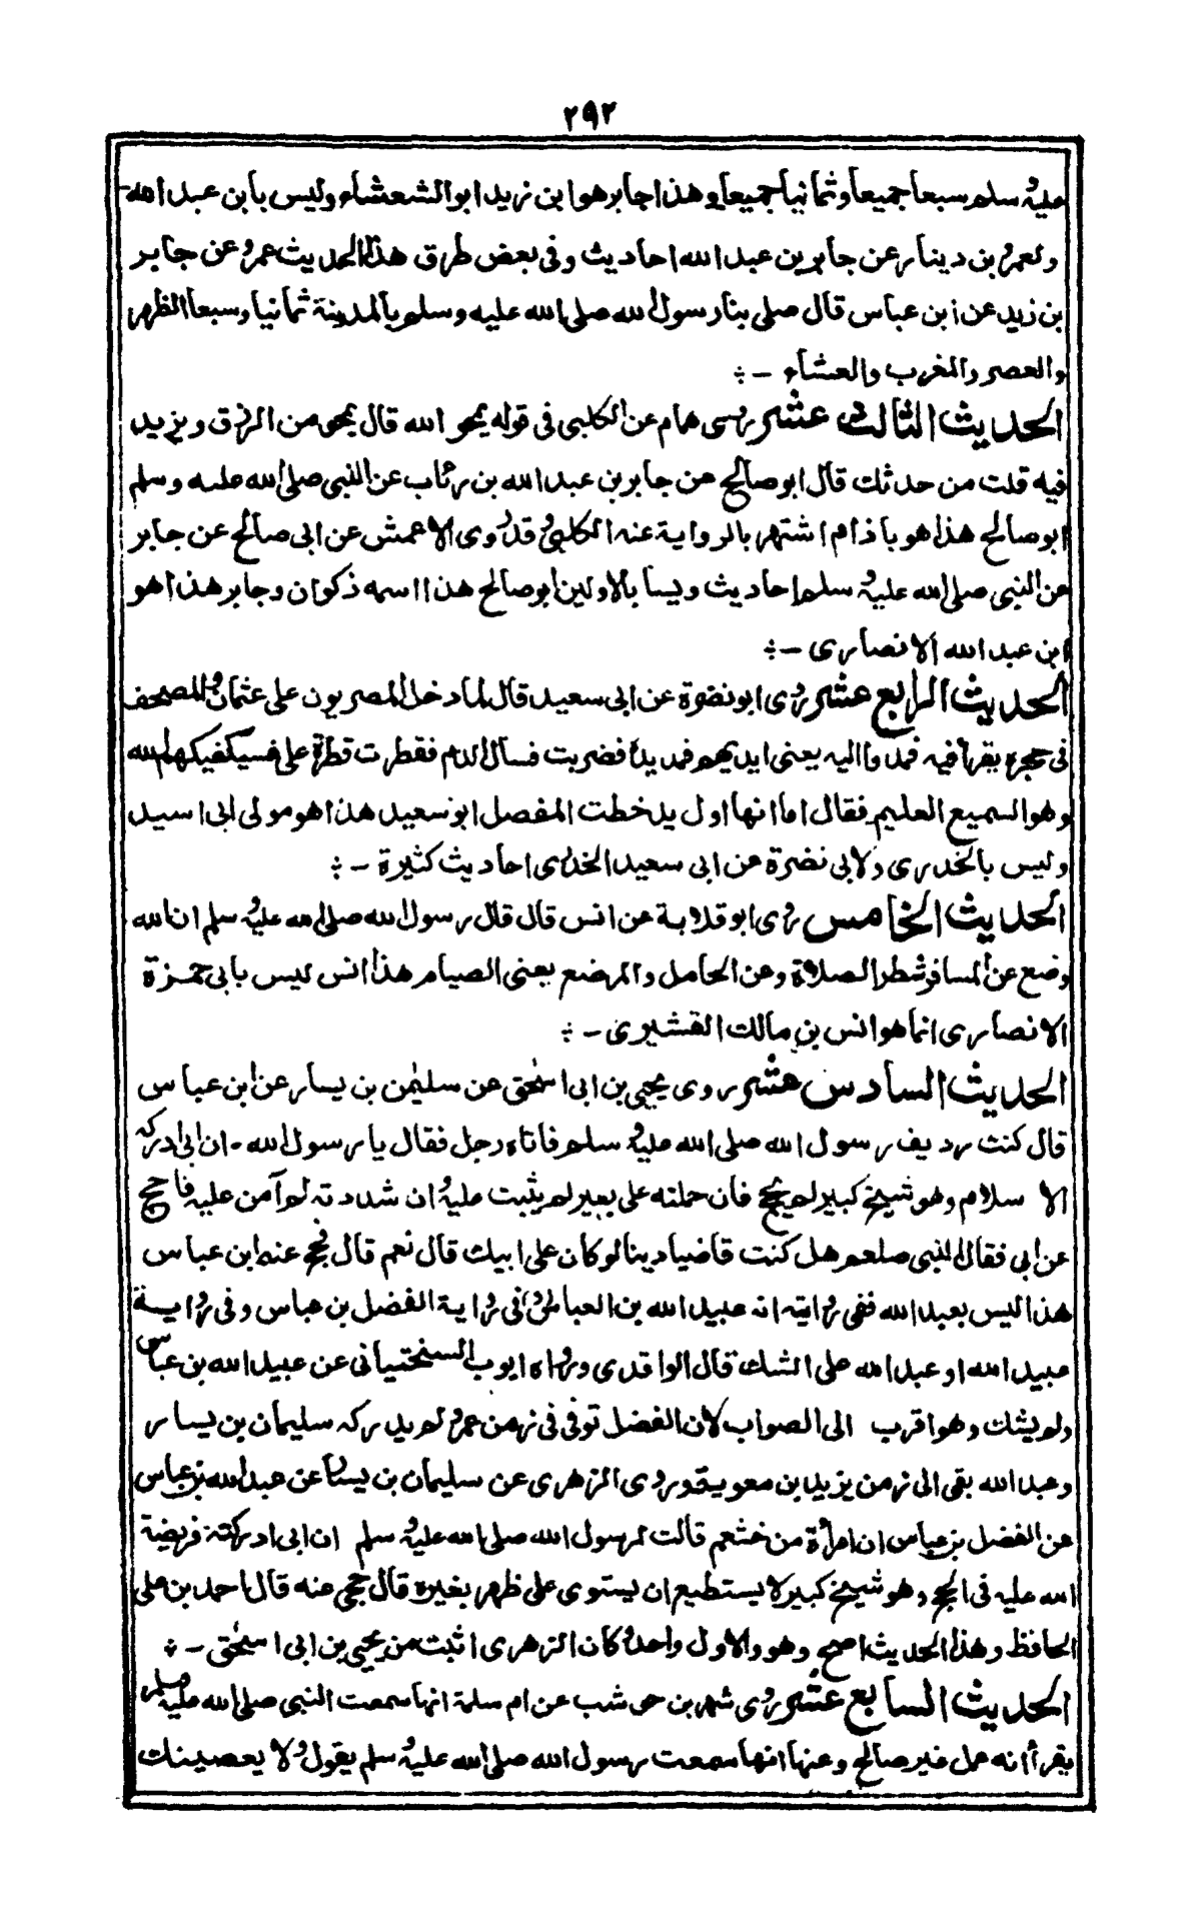 ٢٩٢
عليه وسلم سبعا جميعا وثمانيا جميعا وهذا جابر هو ابن زيد ابو الشعشاء وليس بابن عبد الله
ولعمرو بن دينار عن جابر بن عبد الله احاديث وفى بعض طرق هذا الحديث عمرو عن جابر
بن زيد عن ابن عباس قال صلى بنا رسول الله صلى الله عليه وسلم بالمدينة ثمانيا وسبعا الظهر
والعصر والمغرب والعشاء ـ ؞
الحديث الثالث عشر روى همام عن الكلبى فى قوله يمحو الله قال يمحو من الرزق ويزيد
فيه قلت من حدثك قال ابو صالح عن جابر بن عبد الله بن رئاب عن النبى صلى الله عليه وسلم
ابو صالح هذا هو باذام اشتهر بالرواية عنه الكلبى وقد روى الاعمش عن ابى صالح عن جابر
عن النبى صلى الله عليه وسلم احاديث وليسا بالاولين ابو صالح هذا اسمه ذكوان وجابر هذا هو
ابن عبد الله الانصارى ـ ؞
الحديث الرابع عشر روى ابو نضرة عن ابى سعيد قال لما دخل المصريون على عثمان والمصحف
فى حجره يقرأ فيه فمدوا اليه يعنى ايديهم فمد يده فضربت فسال الدم فقطرت قطرة على فسيكفيكهم الله
وهو السميع العليم فقال اما انها اول يد خطت المفصل ابو سعيد هذا هو مولى ابى اسيد
وليس بالخدرى ولابى نضرة عن ابى سعيد الخدرى احاديث كثيرة ـ ؞
الحديث الخامس روى ابو قلابة عن انس قال قال رسول الله صلى الله عليه وسلم ان الله
وضع عن المسافر شطر الصلاة وعن الحامل والمرضع يعنى الصيام هذا انس ليس بابى حمزة
الانصارى انما هو انس بن مالك القشيرى ـ ؞
الحديث السادس عشر روى يحيى بن ابى اسحٰق عن سليمٰن بن يسار عن ابن عباس
قال كنت رديف رسول الله صلى الله عليه وسلم فاتاه رجل فقال يا رسول الله ـ ان ابى ادركه
الا سلام وهو شيخ كبير لم يحج فان حملته على بعير لم يثبت عليه وان شددته لم آمن عليه فاحج
عن ابى فقال النبى صلعم هل كنت قاضيا دينا لو كان على ابيك قال نعم قال فحج عنه ابن عباس
هذا ليس بعبد الله ففى رواية انه عبيد الله بن العباس وفى رواية الفضل بن عباس وفى رواية
عبيد الله او عبد الله على الشك قال الواقدى ورواه ايوب السختيانى عن عبيد الله بن عباس
ولم يشك وهو اقرب الى الصواب لان الفضل توفى فى زمن عمرو لم يدركه سليمان بن يسار
وعبد الله بقى الى زمن يزيد ابن معوية وروى الزهرى عن سليمان بن يسار عن عبد الله بن عباس
عن الفضل بن عباس ان امرأة من خثعم قالت لرسول الله صلى الله عليه وسلم ان ابى ادركته فريضة
الله عليه فى الحج وهو شيخ كبير لا يستطيع ان يستوى على ظهر بغيره قال حجى عنه قال احمد بن على
الحافظ وهذا الحديث اصح وهو والاول واحد وكان الزهرى اثبت من يحيى بن ابى اسحٰق ـ ؞
الحديث السابع عشر روى شهر بن حوشب عن ام سلمة انها سمعت النبى صلى الله عليه وسلم
يقرأ انه عمل غير صالح وعنها انها سمعت رسول الله صلى الله عليه وسلم يقول ولا يعصينك